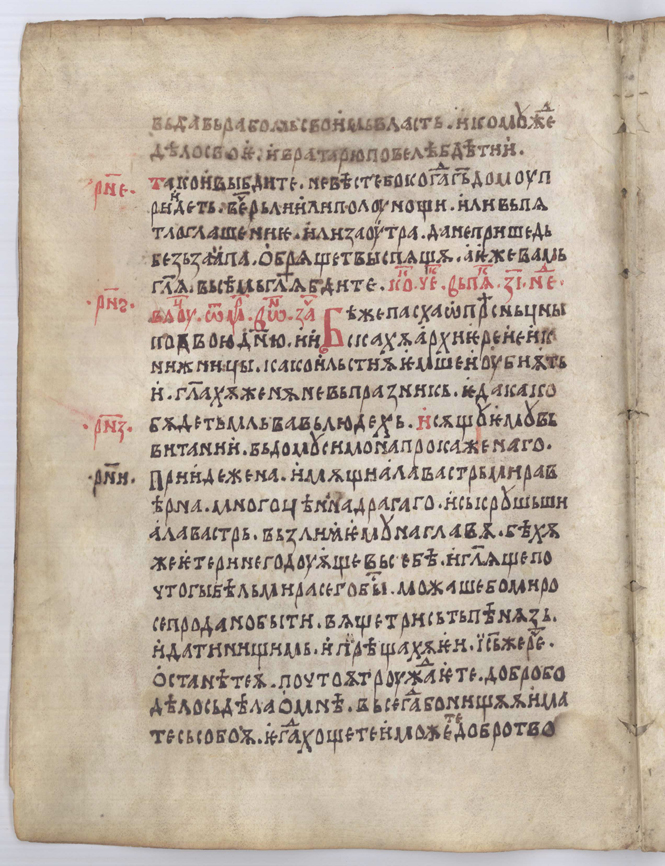 вьдавьрабомьсвоимьвласть · икомꙋже
дѣлосвоѥ · ивратарюповелѣбдѣти ·
рн҃е · такоивыбдите · невѣстебокогдагь҃домоуп
риидеть · вⷱ҇ерьлиилиполоунощи · иливьпѧ
тлоглашениѥ · илизаоутра · данепришедь
безьзаапа · обрѧщетвыспѧщѧ · аꙗжевамь
гл҃ѧ · всѣмьгл҃ѧбдите ·
рн҃ѕ · Бѣжепасхаѡпрѣсньцны
подвоюдн҃ию · ии скахѫархиѥреиѥик
нижницы · какоильстиѫѥмшеиоубиѫть
и · гл҃ахѫженѧневьпразникь · ѥдакако
рн҃з · бѫдетьмльвавьлюдехь · исѫщоуѥмꙋвь
витании · вьдомꙋсимонапрокаженаго ·
рн҃и · Прииideжена · имѫщиалавастрьмирав
ѣрна · многоцѣннадрагаго · исьскрꙋшьши
алавастрь · вьзлиꙗѥмꙋнаглавѫ · бѣхѫ
жеѥтеринегодоуѭщевьсебѣ · игл҃ѧщепо
чтогыбѣльмирасегобыⷭ҇ · можашебомиро
сепроданобыти · вѧщетрисьтьпѣнѧзь ·
идатинищимь · ипрѣщахѫѥи · іс҃ьжереⷱ҇ ·
останѣтеѧ · почтоѧтроуждаѥте · доброво
дѣлосьдѣлаомнѣ · вьсегдабонищѧѧима
тесьсобоѧ · ѥгдахощетеиможетедобротво